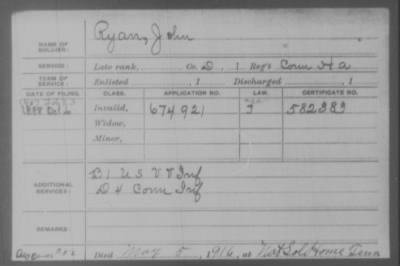 Ryan, John
NAME OF SOLDIER:
SERVICE: Late rank, Co. D, 1 Reg't Conn H a
TERM OF SERVICE: Enlisted , 1 Discharged , 1
DATE OF FILING. CLASS. APPLICATION NO. LAW. CERTIFICATE NO.
1888 Invalid, 674921 582389
Widow,
Minor,
B 1 U S V V Inf
ADDITIONAL SERVICES: D 4 Conn Inf
REMARKS:
Died May 5, 1916, at Nat Sol Home Tenn